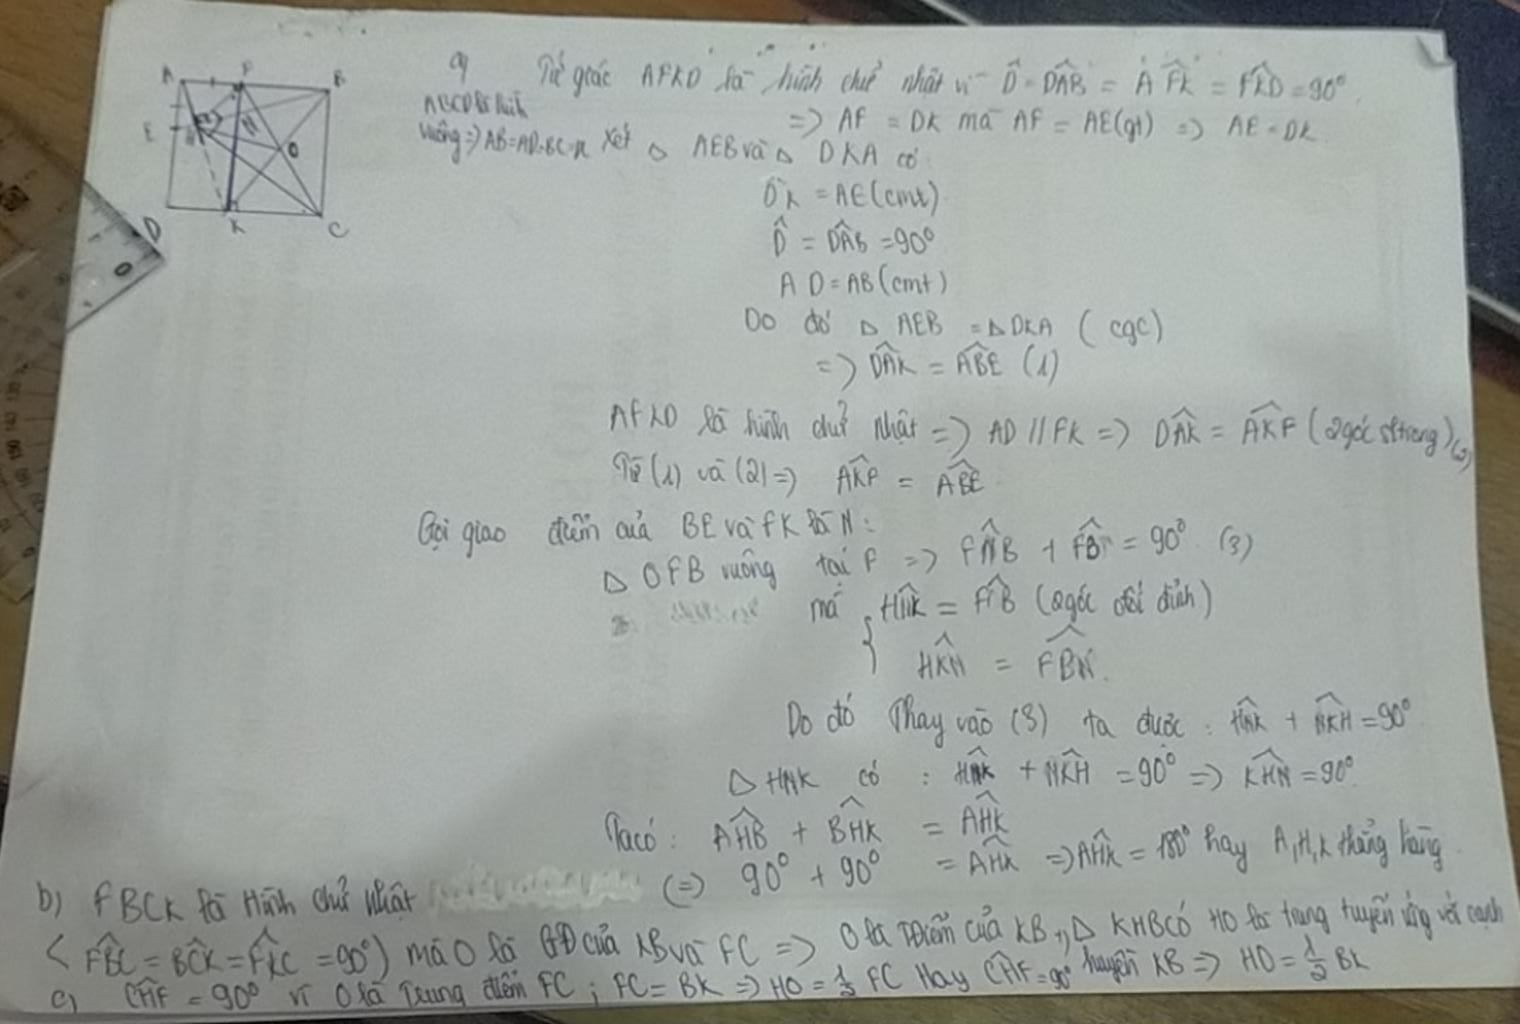 A F B
E H N O
D K C
a) Tứ giác AFKD là hình chữ nhật vì D̂ = DÂB = AF̂K = FK̂D = 90°
ABCD là hình vuông => AB = AD = BC =
=> AF = DK mà AF = AE (gt) => AE = DK
Xét △ AEB và △ DKA có:
DK = AE (cmt)
D̂ = DÂB = 90°
AD = AB (cmt)
Do đó △ AEB = △ DKA (cgc)
=> DÂK = AB̂E (1)
AFKD là hình chữ nhật => AD // FK => DÂK = AK̂F (2 góc sltrong) (2)
Từ (1) và (2) => AK̂F = AB̂E
Gọi giao điểm của BE và FK là N:
△ OFB vuông tại F => FN̂B + FB̂N = 90° (3)
mà { HN̂K = FN̂B (2 góc đối đỉnh)
HK̂N = FB̂N.
Do đó Thay vào (3) ta được: HN̂K + NK̂H = 90°
△ HNK có: HN̂K + NK̂H = 90° => KĤN = 90°
Ta có: AĤB + BĤK = AĤK
(=) 90° + 90° = AĤK => AĤK = 180° hay A, H, K thẳng hàng
b) FBCK là Hình chữ nhật
< FB̂C = BĈK = FK̂C = 90°) mà O là GĐ của KB và FC => O là TĐiểm của KB, △ KHB có HO là trung tuyến ứng với cạnh
huyền KB => HO = 1/2 BK
c) CĤF = 90° vì O là Trung điểm FC; FC = BK => HO = 1/2 FC Hay CĤF = 90°